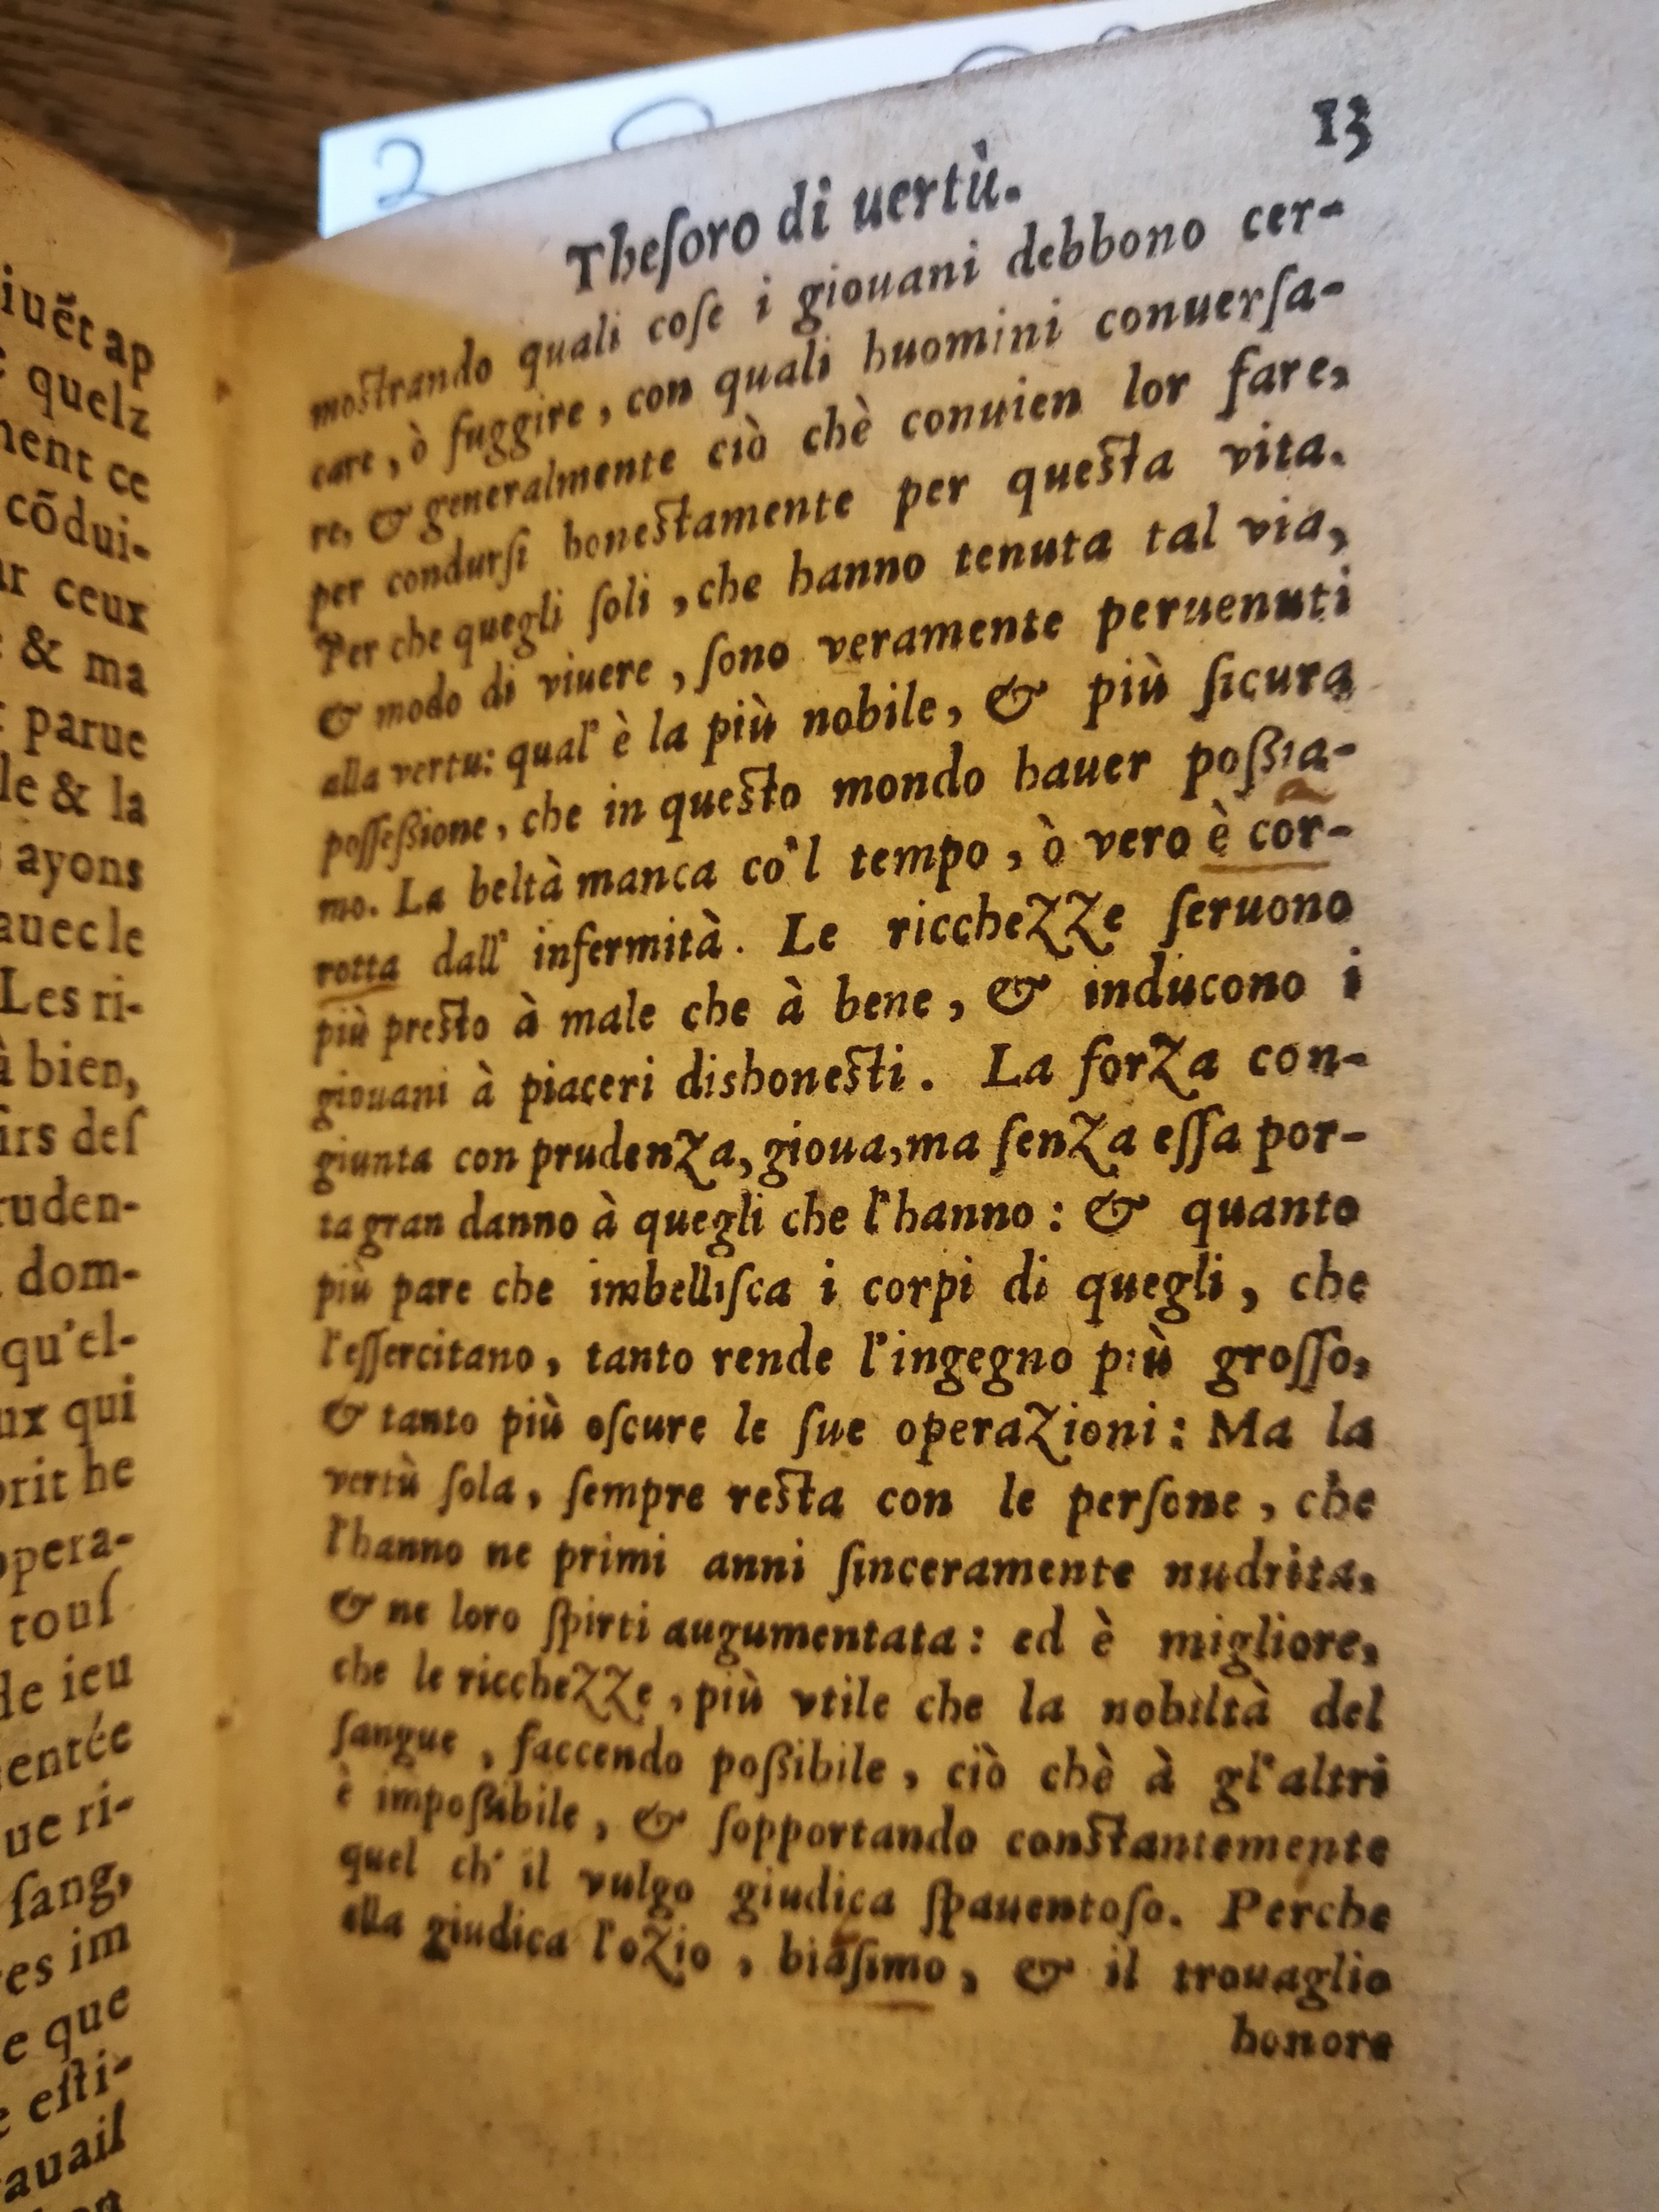 iuẽt ap
quelz
ment ce
cõdui-
ceux
& ma
parue
le & la
ayons
auec le
Les ri-
à bien,
irs deſ
ruden-
dom-
qu'el-
ux qui
prit he
opera-
touſ
de ieu
entée
ue ri-
ſang,
es im
e que
eſti-
auail
2
13
Theſoro di uertù.
moſtrando quali coſe i giouani debbono cer-
care, ò fuggire, con quali huomini conuerſa-
re, & generalmente ciò chè conuien lor fare,
per condurſi honeſtamente per queſta vita.
Per che quegli ſoli, che hanno tenuta tal via,
& modo di viuere, ſono veramente peruenuti
alla vertu: qual' è la più nobile, & più ſicura
poſſeßione, che in queſto mondo hauer poßia-
mo. La beltà manca co'l tempo, ò vero è cor-
rotta dall' infermità. Le ricchezze ſeruono
più preſto à male che à bene, & inducono i
giouani à piaceri dishoneſti. La forza con-
giunta con prudenza, gioua, ma ſenza eſſa por-
ta gran danno à quegli che l'hanno: & quanto
più pare che imbelliſca i corpi di quegli, che
l'eſſercitano, tanto rende l'ingegno più groſſo,
& tanto più oſcure le ſue operazioni: Ma la
vertù ſola, ſempre reſta con le perſone, che
l'hanno ne primi anni ſinceramente nudrita,
& ne loro ſpirti augumentata: ed è migliore,
che le ricchezze, più vtile che la nobiltà del
ſangue, faccendo poßibile, ciò chè à gl'altri
è impoßibile, & ſopportando conſtantemente
quel ch' il vulgo giudica ſpauentoſo. Perche
ella giudica l'ozio, biaſimo, & il trouaglio
honore